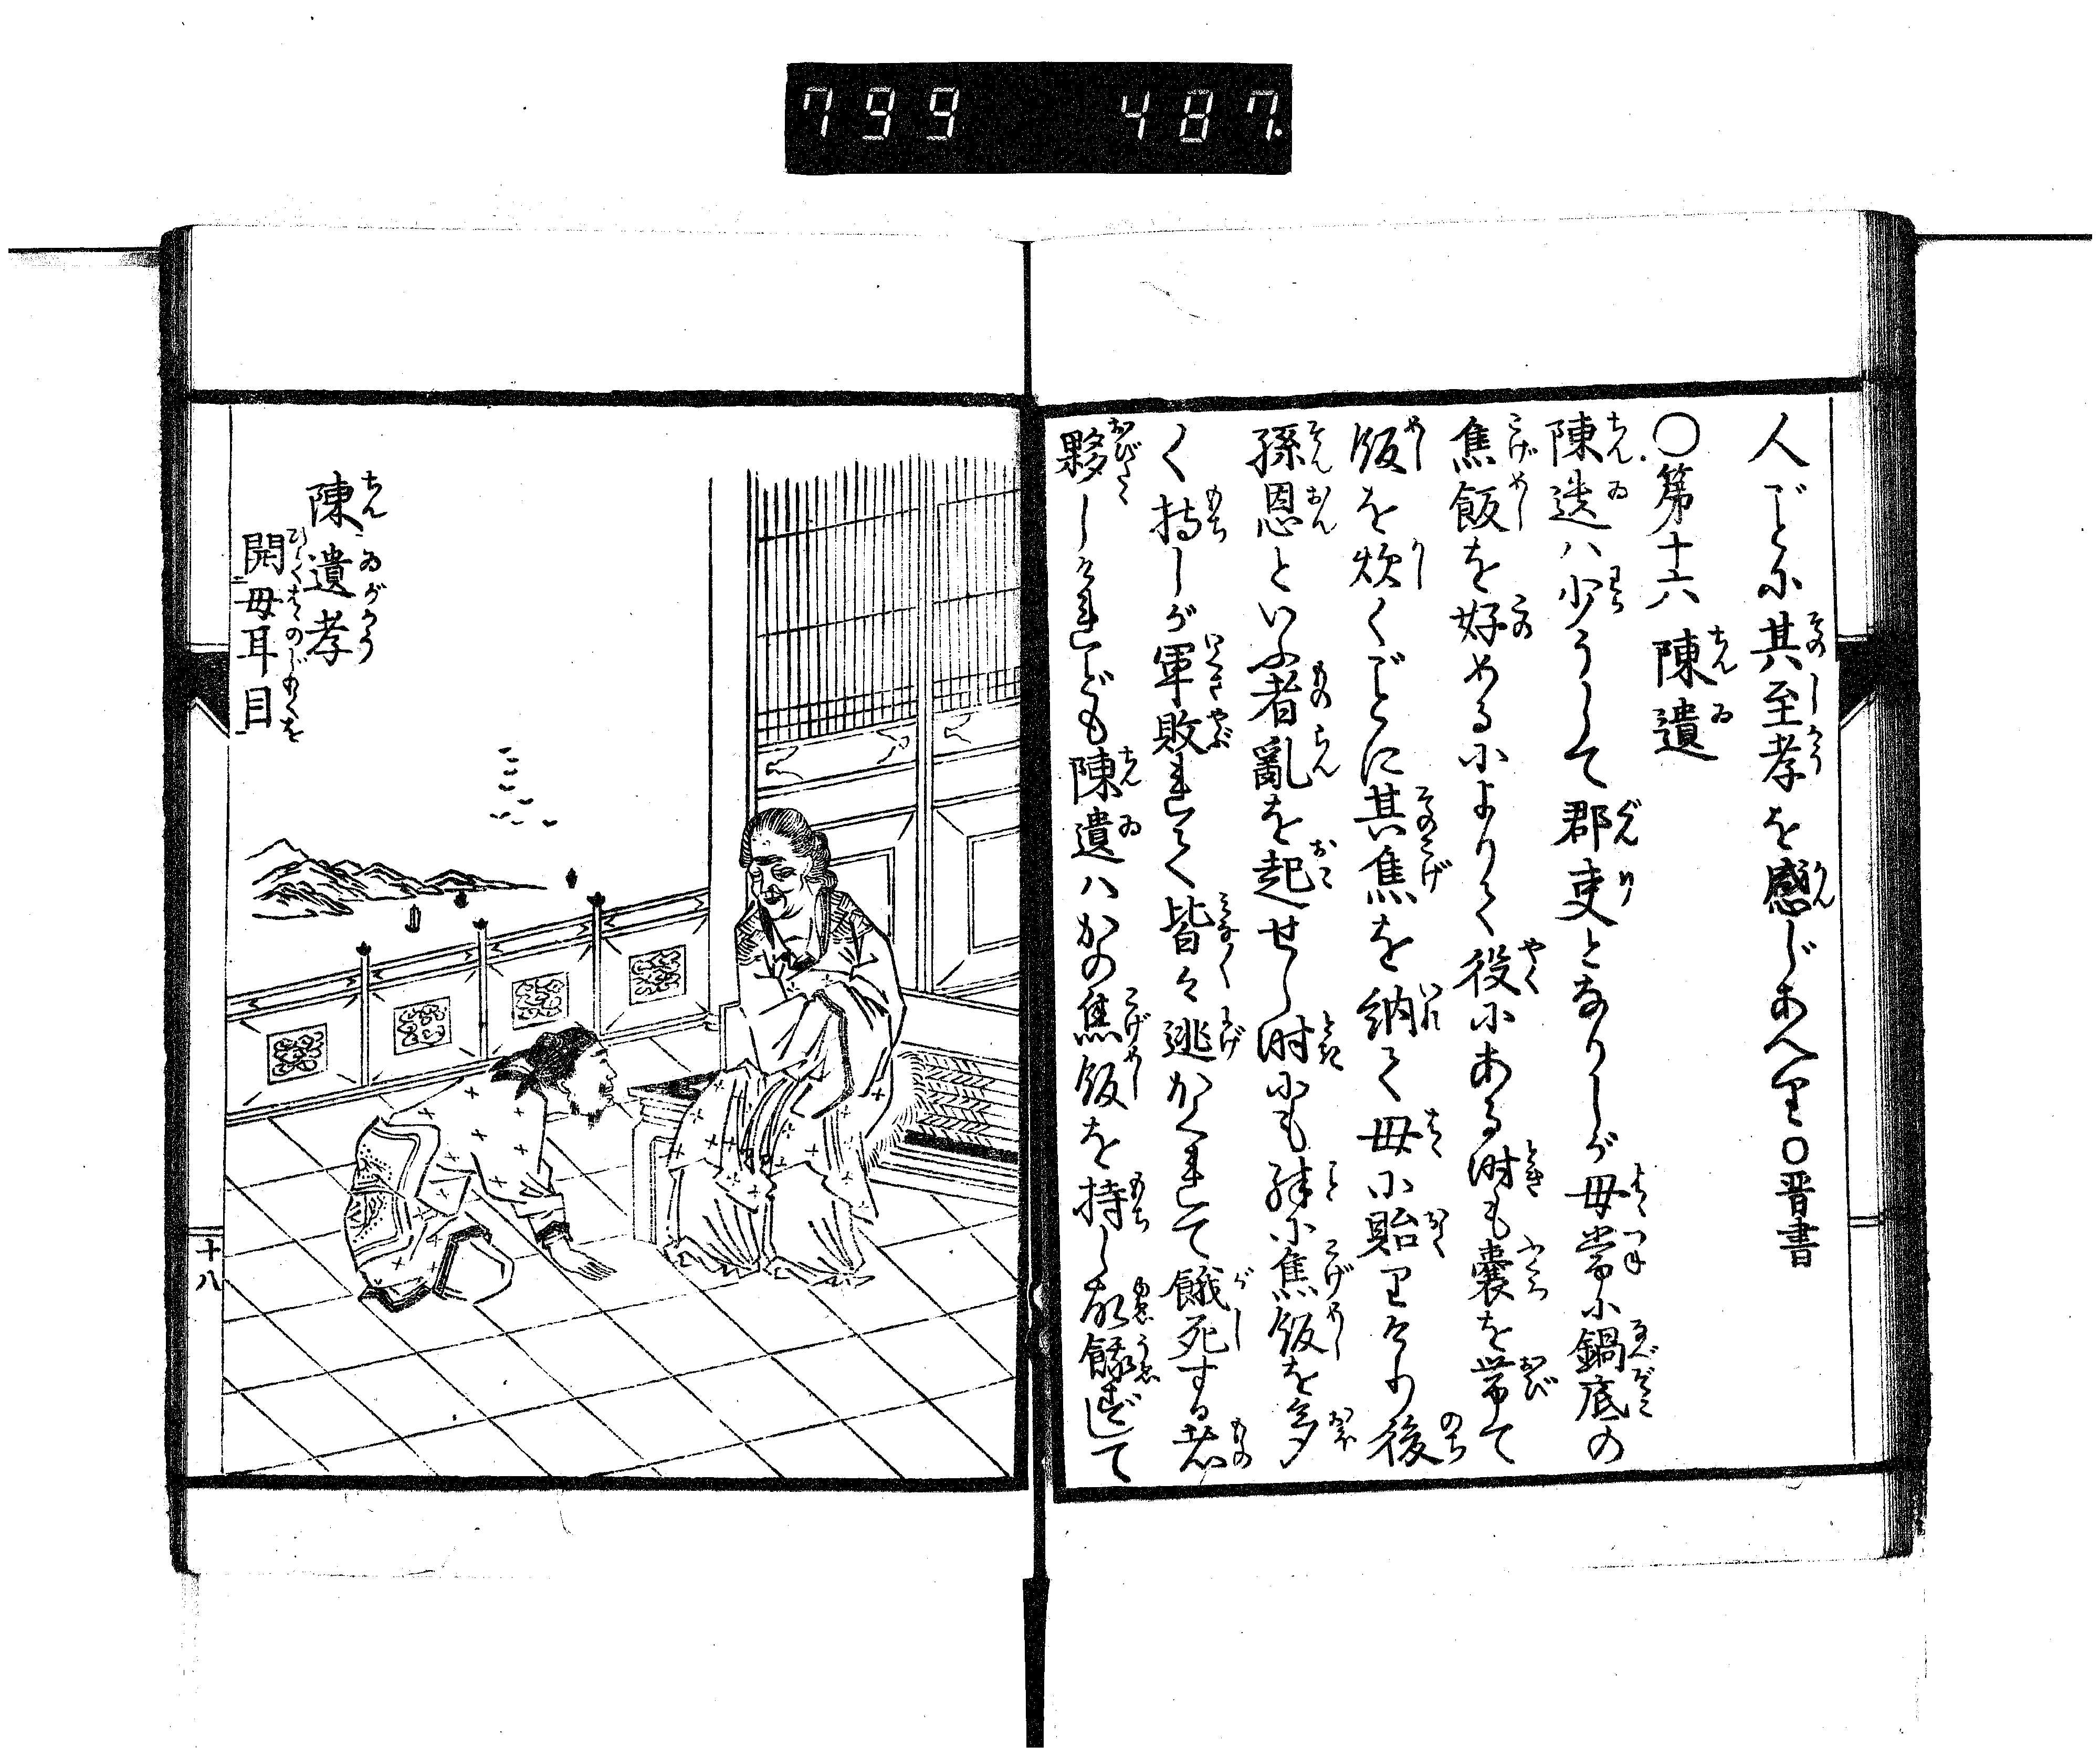 799 487
人ごとに其至孝を感じあへり○晋書
○第十六 陳遺
陳遺ハ少うして郡吏となりしが母常に鍋底の
焦飯を好めるによりて役にある時も囊を帯て
飯を炊くごとに其焦を納て母に貽りけり後
孫恩といふ者亂を起せし時にも殊に焦飯を多
く持しが軍敗れて皆々逃かくれて餓死する者
夥しけれども陳遺ハかの焦飯を持し故餓ずして
陳遺孝
開母耳目
十八